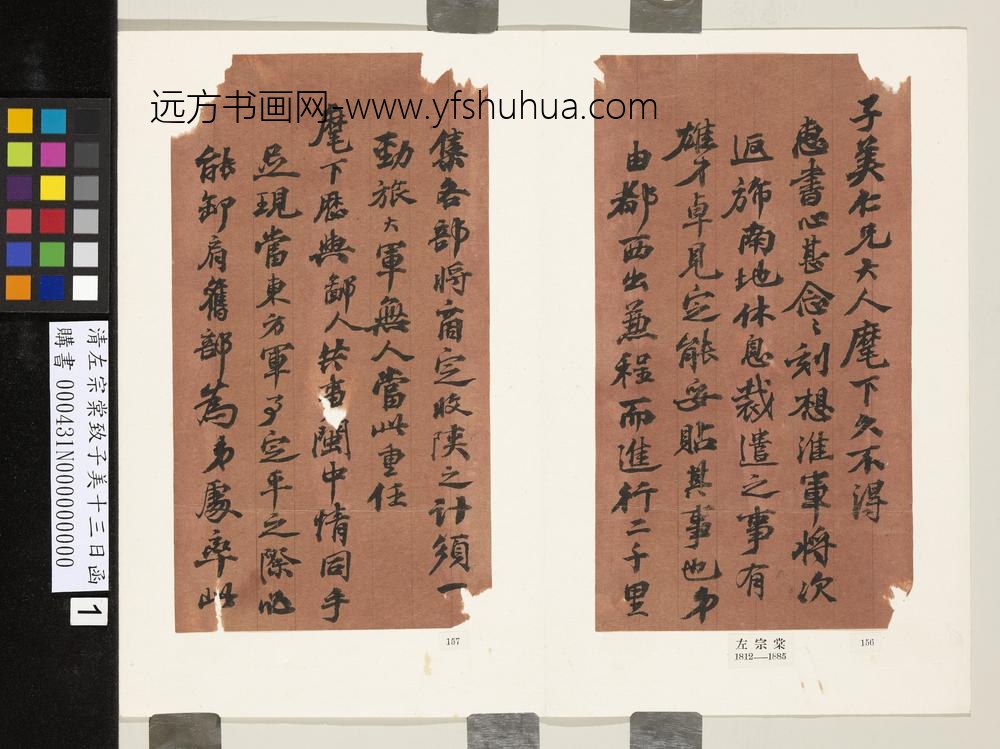 远方书画网-www.yfshuhua.com
子美仁兄大人麾下久不得
惠書心甚念〻刻想淮軍將次
返旆南地休息裁遣之事有
雄才卓見定能妥貼其事也弟
由都西出兼程而進行二千里
集各部將商定收陝之計須一
勁旅大軍無人當此重任
麾下歷與鄙人共事閩中情同手
足現當東方軍事定平之際必
能卸肩舊部為弟處率此
清左宗棠致子美十三日函
購書 000431N000000000
1
157
左宗棠
1812—1885
156